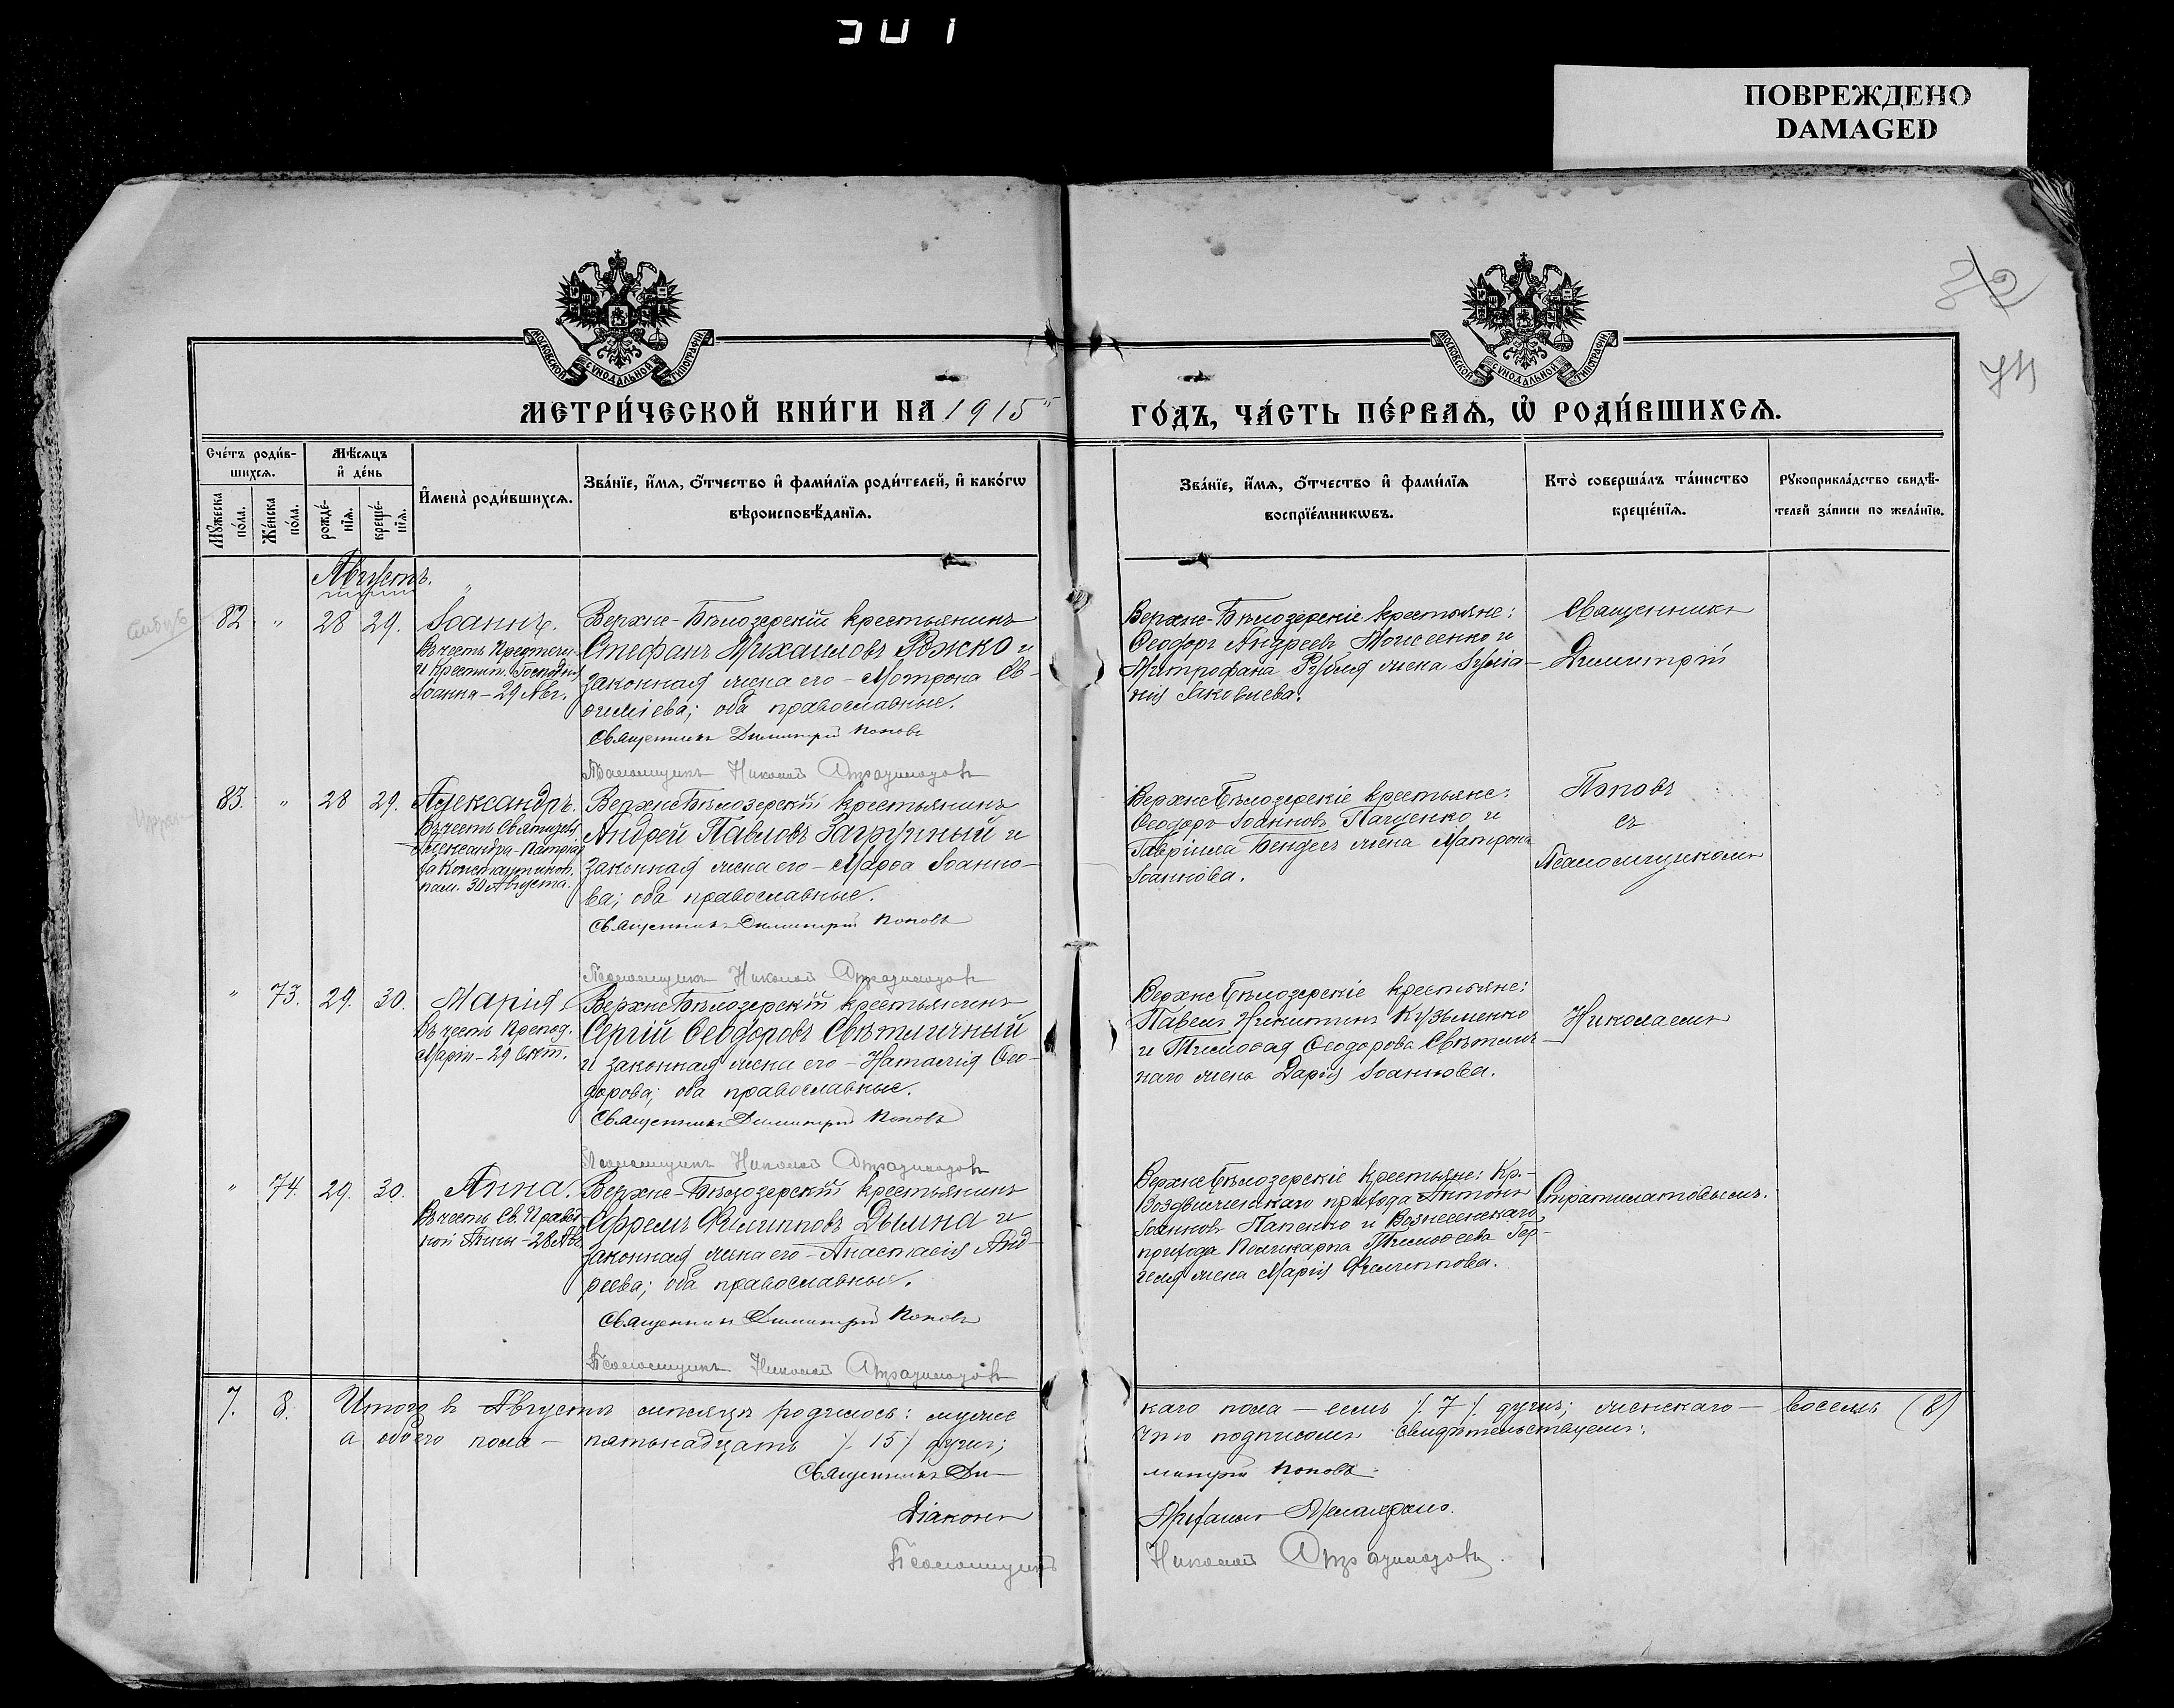 301
ПОВРЕЖДЕНО
DAMAGED
МОСКОВСКОЙ СѴНОДАЛЬНОЙ ТИПОГРАФІИ
МОСКОВСКОЙ СѴНОДАЛЬНОЙ ТИПОГРАФІИ
74
МЕТРИ́ЧЕСКОЙ КНИ́ГИ НА 1915
ГО́ДЪ, ЧА́СТЬ ПЕ́РВАѦ, Ѡ҆ РОДИ́ВШИХСѦ.
Сче́тъ роди́в-
шихсѧ.
Мꙋжеска по́ла.
Же́нска по́ла.
Мѣ́сѧцъ
и҆ де́нь
рожде́-нїѧ.
креще́-нїѧ.
И҆мена̀ роди́вшихсѧ.
Зва́нїе, и҆́мѧ, ѻ҆́тчество и҆ фами́лїѧ роди́телей, и҆ како́гѡ
вѣроисповѣ́данїѧ.
Зва́нїе, и҆́мѧ, ѻ҆́тчество и҆ фами́лїѧ
воспрїе́мникѡвъ.
Кто̀ соверша́лъ та́инство
креще́нїѧ.
Рꙋкоприкла́дство свидѣ́-
телей за́писи по жела́нїю.
Августъ.
82 " 28 29. Іоаннъ.
Въ честь Предтечи
и Крестит. Господня
Іоанна – 29 Авг.
Верхне-Бѣлозерскій крестьянинъ
Стефанъ Михаиловъ Рожко и
законная жена его – Матрона Ев-
ѳиміева; оба православные.
Священникъ Димитрій Поповъ
Псаломщикъ Николай Стратилатовъ
Верхне-Бѣлозерскіе крестьяне:
Ѳеодоръ Андреевъ Моисеенко и
Митрофана Рубля жена Іуліа-
нія Іаковлева.
Священникъ
Димитрій
83. " 28 29. Александръ.
Въ честь Святителя
Александра Патріар
ха Константиноп.
пам. 30 Августа.
Верхне Бѣлозерскій крестьянинъ
Андрей Павловъ Загрунный и
законная жена его – Марѳа Іоанно-
ва; оба православные.
Священникъ Димитрій Поповъ
Псаломщикъ Николай Стратилатовъ
Верхне Бѣлозерскіе крестьяне:
Ѳеодоръ Іоанновъ Пащенко и
Гавріила Бендес жена Матрона
Іоаннова.
Поповъ
съ
Псаломщикомъ
" 73. 29. 30. Марія.
Въ честь Препод.
Маріи – 29 Окт.
Верхне Бѣлозерскій крестьянинъ
Сергій Ѳеодоровъ Свѣтличный
и законная жена его – Наталія Ѳео-
дорова; оба православные.
Священникъ Димитрій Поповъ
Псаломщикъ Николай Стратилатовъ
Верхне Бѣлозерскіе крестьяне:
Павелъ Никитинъ Кузьменко
и Тимоѳея Ѳеодорова Свѣтлич-
наго жена Дарія Іоаннова.
Николаемъ
" 74. 29. 30. Анна.
Въ честь Св. Правед
ной Анны – 28 Авг
Верхне-Бѣлозерскій крестьянинъ
Ефремъ Филипповъ Дымна и
законная жена его – Анастасія Анд-
реева; оба православные.
Священникъ Димитрій Поповъ
Псаломщикъ Николай Стратилатовъ
Верхне Бѣлозерскіе крестьяне: Кр.-
Воздвиженскаго прихода Антонъ
Іоанновъ Папенко и Вознесенскаго
прихода Поликарпа Тимоѳеева Гер-
жена Марія Филиппова.
Стратилатовымъ.
7. 8. Итого въ Августѣ мѣсяцѣ родилось: мужес
каго пола – семь /. 7 /. душъ; женскаго – восемь (8)
а обоего пола – пятьнадцать /. 15 / душъ;
что подписомъ свидѣтельствуемъ:
Священникъ Ди-
митрій Поповъ
Діаконъ
Псаломщикъ
Николай Стратилатовъ.